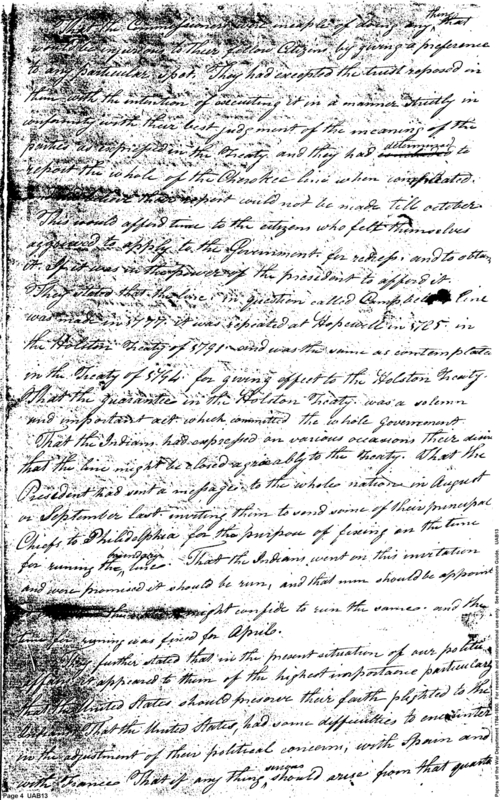 That the Commissioners were incapable of doing any thing that
would be injurious to their fellow Citizens by giving a preference
to any particular spot. They had excepted the trust reposed in
them with the intention of executing it in a manner strictly in
conformity with their best judgment of the meaning of the
parties as expressed in the Treaty and they had determined to
report the whole of the Cherokee line when completed.
that report could not be made till october
This would afford time to the citizens who felt themselves
aggrieved to apply to the Government for redress, and to obtain
it If it was in the power of the president to afford it
They stated that the line in question called Campbells line
was made in 1777. it was repeated at Hopewell in 1785. in
the Holston Treaty of 1791. and was the same as contemplated
in the Treaty of 1794. for giving effect to the Holston Treaty.
That the guarantee in the Holston Treaty. was a solemn
and important act which committed the whole Government
That the Indians had expressed on various occasions their desire
that the line might be closed agreeably to the Treaty. That the
President had sent a message to the whole nation in August
or September last inviting them to send some of their principal
Chiefs to Philadelphia for the purpose of fixing on the time
for runing the boundary line. That the Indians went on this invitation
and were promised it should be run, and that men should be appointed
might confide to run the same. and the
time for running was fixed for April.
They further stated that in the present situation of our political
affairs it appeared to them of the highest importance particularly
that the United States should preserve their faith plighted to the
Indians. That the United States, had some difficulties to encounter
in the adjustment of their political concerns, with Spain and
with France That if any thing should arise from that quarter
Page 4 UAB13
Papers of the War Department 1784-1800. For research and instructional use only. See Permissions Guide. UAB13